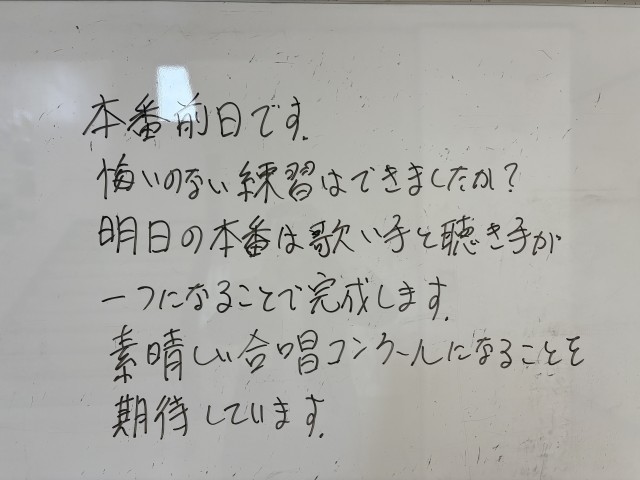 本番前日です.
悔いのない練習はできましたか?
明日の本番は歌い手と聴き手が
一つになることで完成します.
素晴しい合唱コンクールになることを
期待しています.